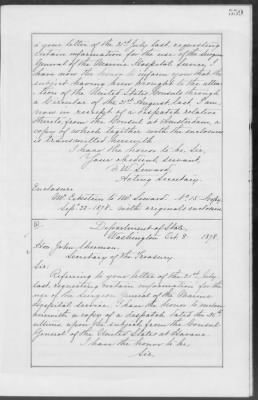 559
your letter of the 21st July last, requesting
certain information for the use of the Surgeon
General of the Marine Hospital Service, I
have now the honor to inform you that the
subject having been brought to the atten-
tion of the United States Consuls through
a Circular of the 2nd August last, I am
now in receipt of a despatch relative
thereto from the Consul at Amsterdam, a
copy of which together with the enclosure
is transmitted herewith.
I have the honor to be, Sir,
Your obedient servant,
F. W. Seward,
Acting Secretary.
Enclosure
Mr. Eckstein to Mr. Seward. No. 15. Copy
Sept. 22. 1878. with original enclosure
Department of State,
Washington Oct. 8. 1878.
Hon. John Sherman,
Secretary of the Treasury.
Sir:
Referring to your letter of the 21st July
last, requesting certain information for the
use of the Surgeon General of the Marine
Hospital Service. I have the honor to enclose
herewith a copy of a despatch dated the
ultimo, upon the subject, from the Consul
General of the United States at Havana.
I have the honor to be,
Sir,